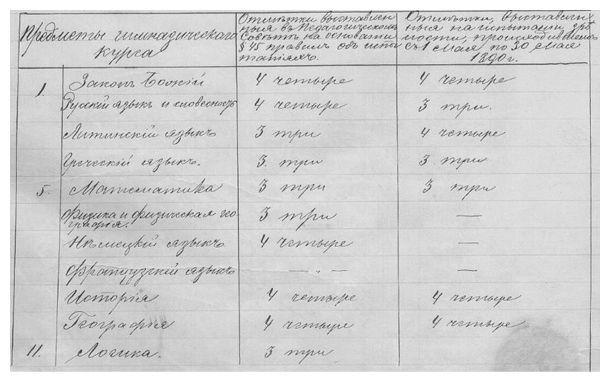 Предметы гимназическаго курса
Отмѣтки выставленныя въ Педагогическомъ Совѣтѣ на основаніи § 45 правилъ объ испытаніяхъ.
Отмѣтки, выставленныя на испытаніи зрѣлости, происходившемъ съ 1 мая по 30 мая 1890 г.
1. Законъ Божій 4 четыре 4 четыре
Русскій языкъ и словесность 4 четыре 3 три.
Латинскій языкъ 3 три 4 четыре
Греческій языкъ. 3 три 3 три
5. Математика 3 три 3 три
Физика и физическая географія. 3 три —
Нѣмецкій языкъ 4 четыре —
Французскій языкъ — . — —
Исторія 4 четыре 4 четыре
Географія 4 четыре 4 четыре
11. Логика. 3 три